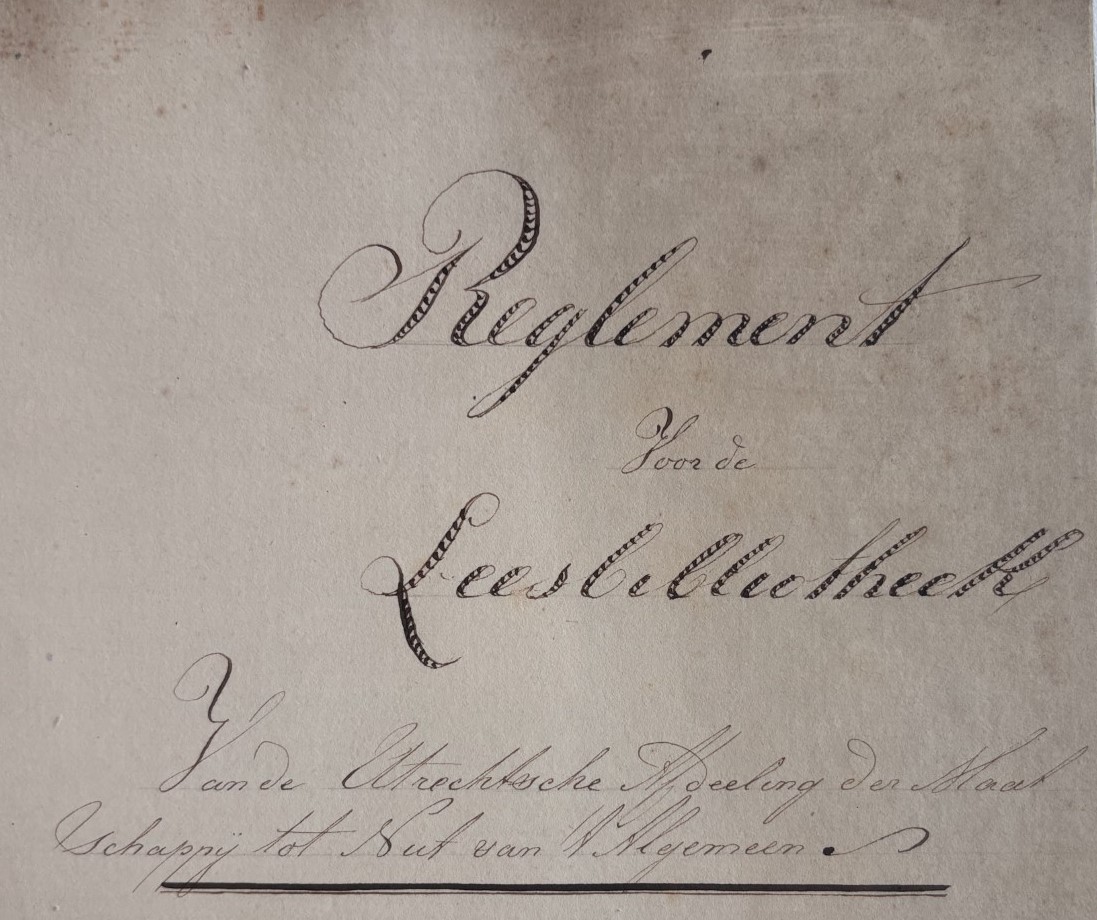 Reglement
Voor de
Leesbibliotheek
Van de Utrechtsche Afdeeling der Maat
schappij tot Nut van 't Algemeen.